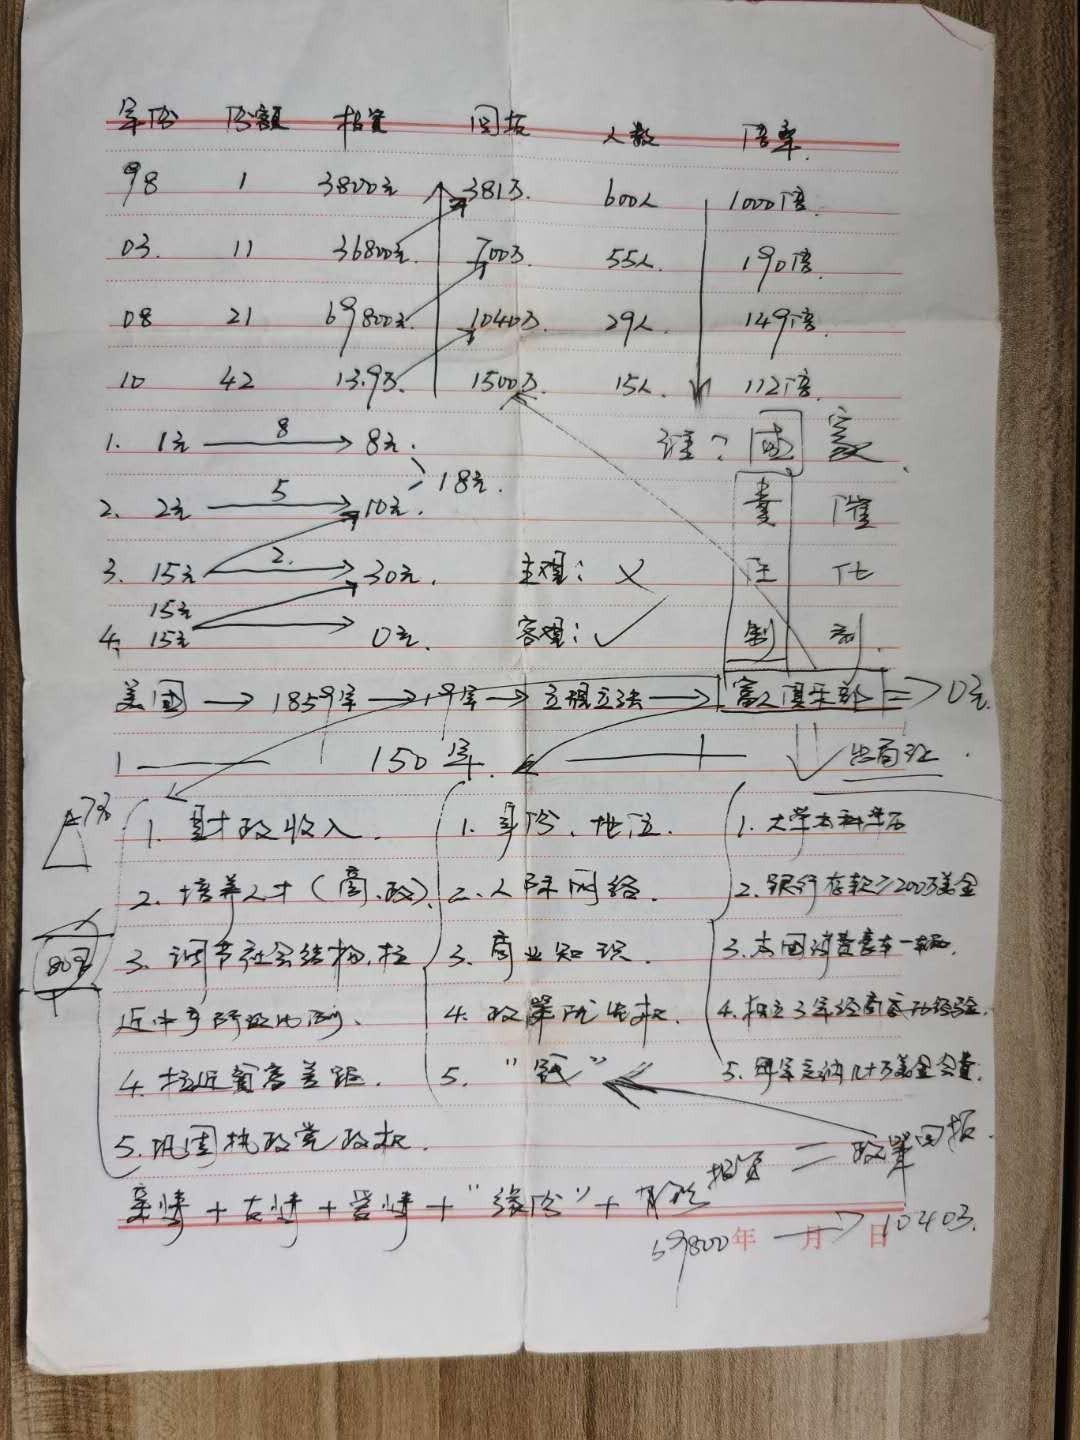 年份 份额 投资 回报 人数 倍率
98 1 3800元 381万 600人 1000倍
03. 11 36800元 700万 55人. 190倍
08 21 69800元. 1040万. 29人. 149倍
10 42 13.9万. 1500万. 15人. 112倍.
1. 1元 8 8元. 谁? 国家
18元.
2. 2元 5 10元. 责 催
3. 15元 2. 30元. 主观: × 任 化
15元
4. 15元 0元. 客观: ✓ 制 剂.
美国 → 1859年 → 19年 → 立规立法 → 富人俱乐部 => 0元.
1 150年. 出局班.
1. 财政收入. 1. 身份、地位. 1. 大学本科学历
2. 培养人才(商、政). 2. 人际网络. 2. 银行存款≥200万美金
80后 3. 调节社会结构,拉 3. 商业知识. 3. 本国消费豪车一辆.
近中产阶级比例、 4. 政策优先权. 4. 独立3年经商 经验.
4. 拉近贫富差距. 5. "钱" 5. 每年交纳几十万美金会费.
5. 巩固执政党政权.
亲情 + 友情 + 爱情 + "缘份" + 投资 = 政策回报.
69800 → 1040万.
年 月 日